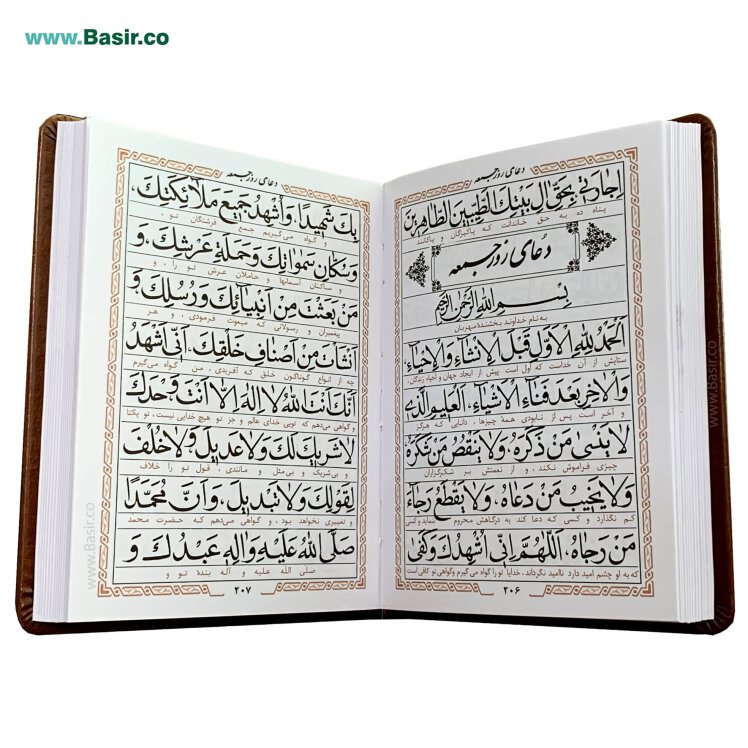 www.Basir.co
دعای روز جمعه
اِجارَتي بِحَقِّ الِ بَيْتِكَ الطَّيِّبينَ الطّاهِرينَ
پناه ده به حق خاندانت که پاکیزگان و پاکانند
دعای روز جمعه
بِسْمِ اللهِ الرَّحْمنِ الرَّحيمِ
به نام خداوند بخشنده مهربان
اَلْحَمْدُ لِلّهِ الْاَوَّلِ قَبْلَ الْاِنْشاءِ وَالْاِحْياءِ،
ستایش از آن خداست که اول است پیش از ایجاد جهان و احیاء زندگان،
وَالْاخِرِ بَعْدَ فَناءِ الْاَشْياءِ، اَلْعَليمِ الَّذي
و آخر است پس از نابودی همۀ چیزها، دانایی که هرگز
لا يَنْسى مَنْ ذَكَرَهُ، وَلا يَنْقُصُ مَنْ شَكَرَهُ
چیزی فراموش نکند، و از نعمتش بر شکرگزاران
وَلا يَخيبُ مَنْ دَعاهُ، وَلا يَقْطَعُ رَجاءَ
کم نگذارد و کسی که دعا کند به درگاهش محروم ننماید وکسی
مَنْ رَجاهُ، اَللّهُمَّ اِنّي اُشْهِدُكَ وَكَفى
که به او چشم امید دارد ناامید نگرداند، خدایا تو را گواه می گیرم وگواهی تو کافی است
۲۰۶
دعای روز جمعه
بِكَ شَهيدًا، وَاُشْهِدُ جَميعَ مَلائِكَتِكَ،
و گواه می‌گیریم جمع فرشتگان تو،
وَسُكّانَ سَمواتِكَ وَحَمَلَةَ عَرْشِكَ، وَ
و ساکنان آسمانها و حاملان عرش تو را، و
مَنْ بَعَثْتَ مِنْ اَنْبِيائِكَ وَرُسُلِكَ، وَ
پیمبران و رسولانی که مبعوث فرمودی، و هر
اَنْشَأْتَ مِنْ اَصْنافِ خَلْقِكَ، اَنّي اَشْهَدُ
چه از انواع گوناگون خلق که آفریدی، من گواه می‌گیرم
اَنَّكَ اَنْتَ اللهُ لا اِلهَ اِلّا اَنْتَ وَحْدَكَ
و گواهی می‌دهم که تویی خدای عالم و جز تو هیچ خدایی نیست، تو یکتا
لا شَريكَ لَكَ وَلا عَديلَ، وَلا خُلْفَ
و بی‌شریک و بی‌مثل و مانندی، قول تو را خلاف
لِقَوْلِكَ وَلا تَبْديلَ، وَاَنَّ مُحَمَّدًا
و تغییری نخواهد بود، و گواهی می‌دهم که حضرت محمد
صَلَّى اللهُ عَلَيْهِ وَالِهِ عَبْدُكَ وَ
صلی الله علیه و آله بندۀ تو و
۲۰۷
www.Basir.co
www.Basir.co